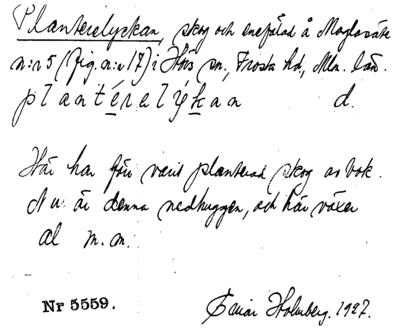 Planterelyckan, skog och enefälad å Maglasäte
n:r 5 (fig. n:r 17) i Hörs sn, Frosta hd, Mlm. län.
plantérelýkan d.
Här har förr varit planterad skog av bok.
Nu är denna nedhuggen, och här växer
al m.m.
Nr 5559.
Holmberg. 1927.